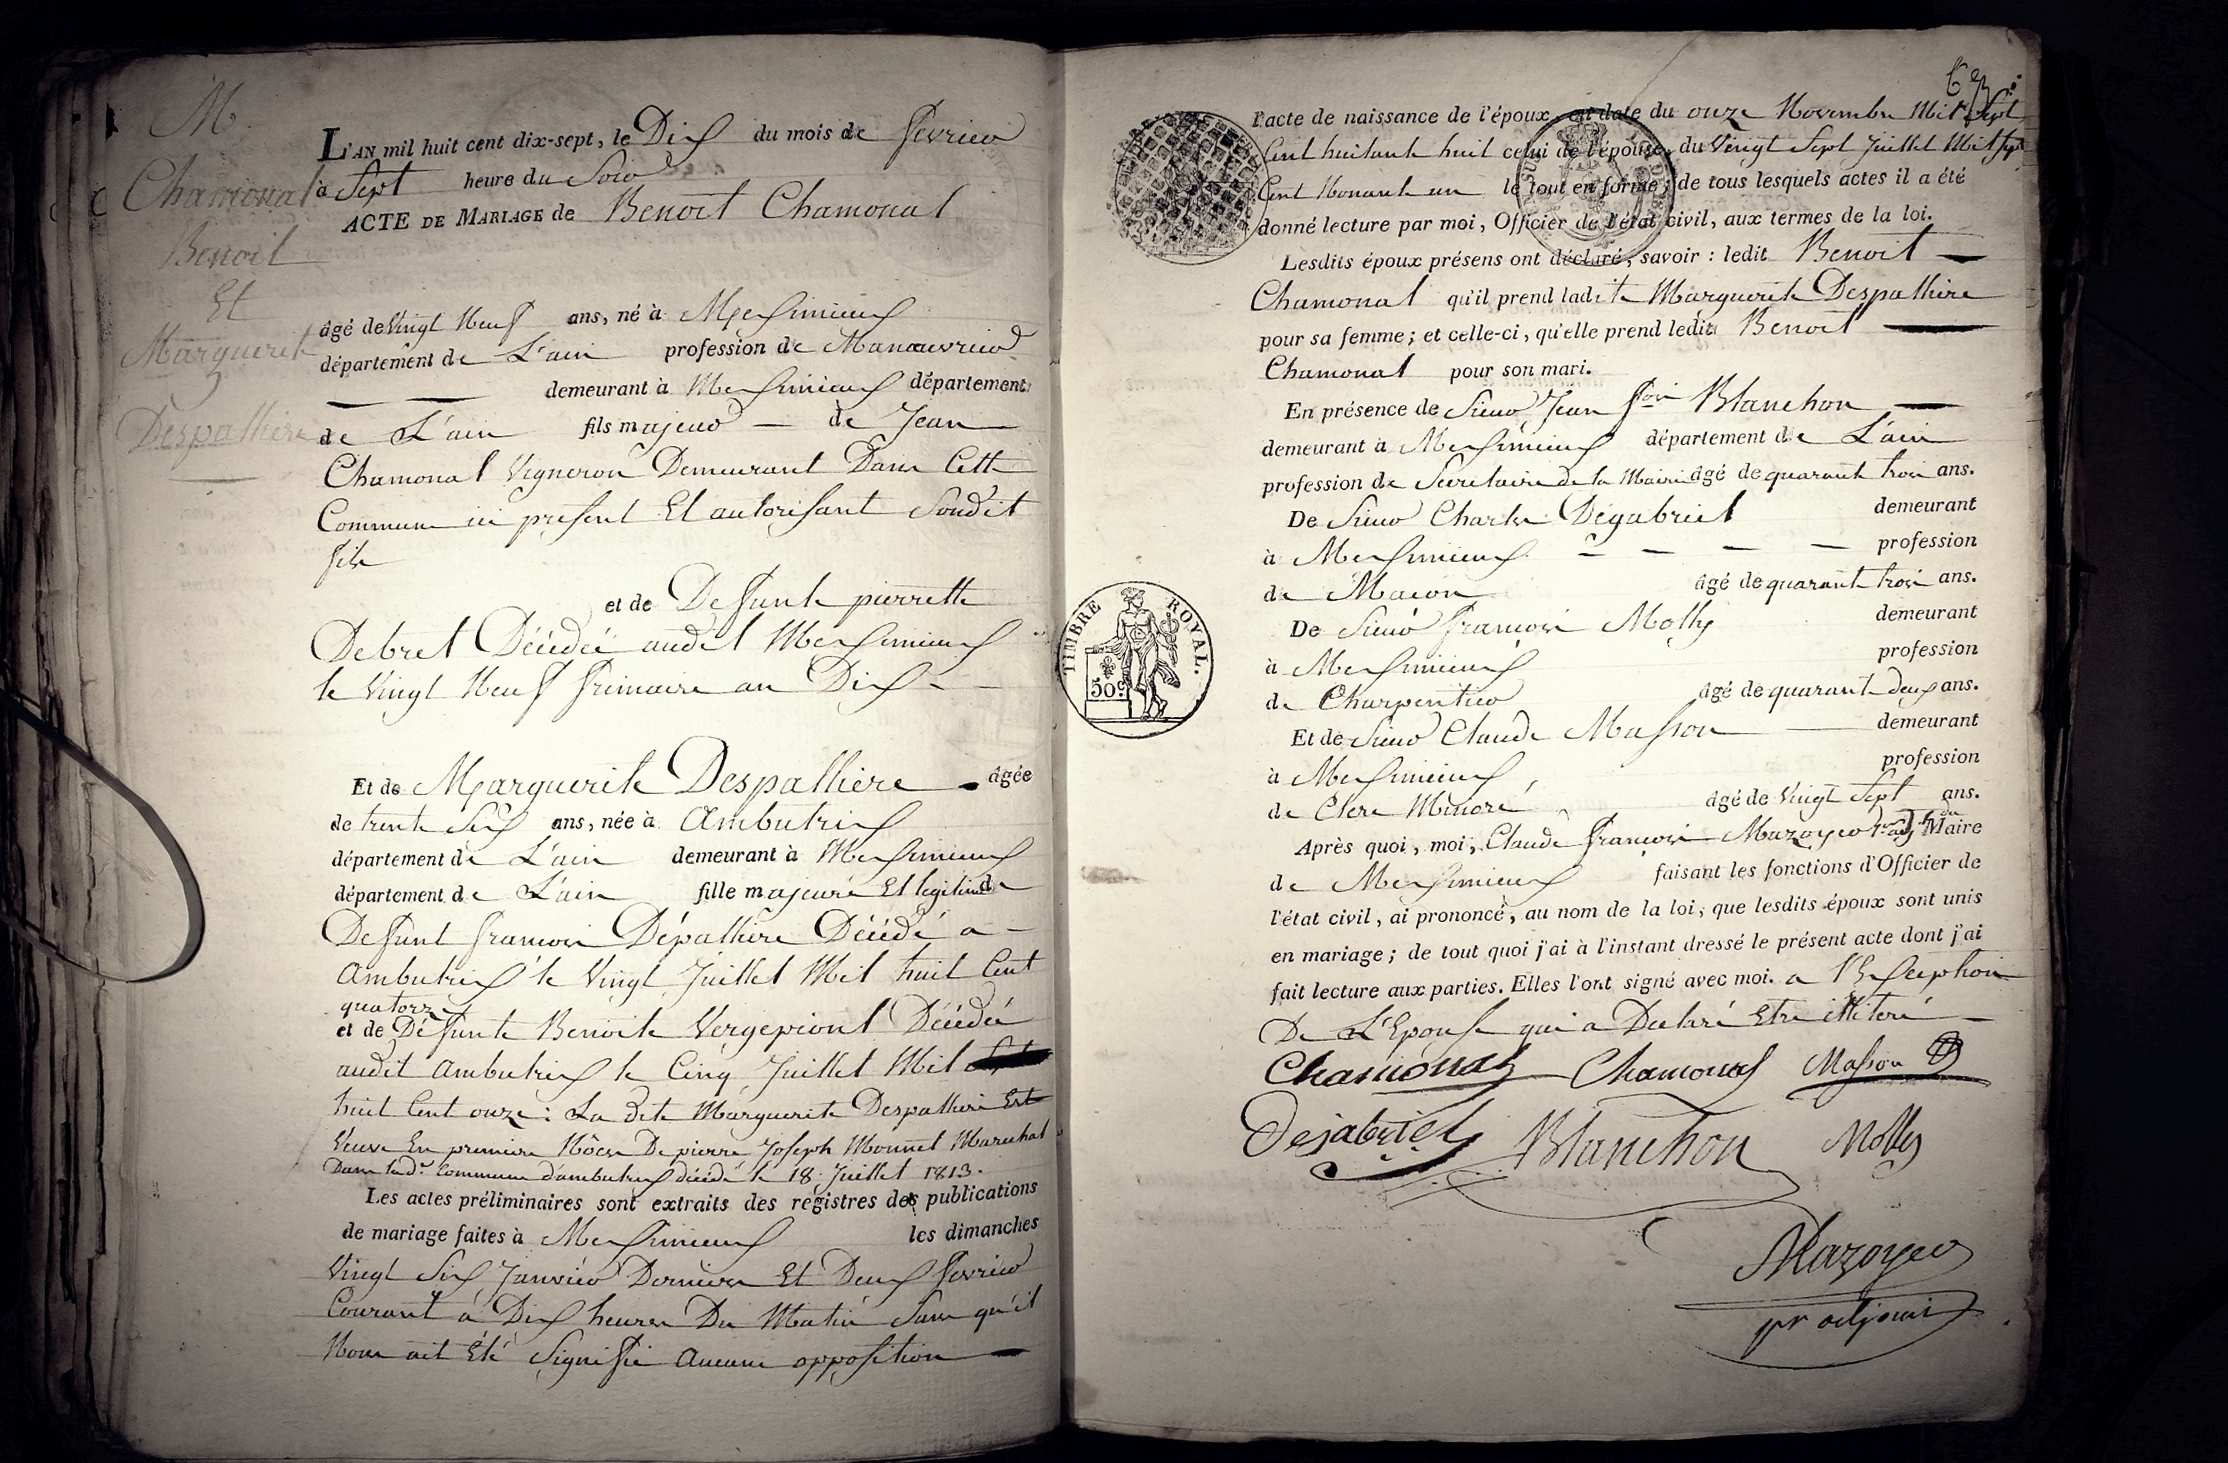 M.
Chamonal
Benoit
Et
Marguerite
Despallière
L'AN mil huit cent dix-sept, le Dix du mois de fevrier
à Sept heure du Soir
ACTE DE MARIAGE de Benoit Chamonal
âgé de Vingt Neuf ans, né à Messimieux
département de L'ain profession de Manoeuvrier
demeurant à Messimieux département
de L'ain fils majeur de Jean
Chamonal Vigneron Demeurant Dans Cette
Commune ici present Et autorisant Soudit
fils
et de Defunte pierrette
Debret Décédée audit Messimieux
le Vingt Neuf frimaire an Dix
Et de Marguerite Despallière âgée
de trente Six ans, née à Ambutrix
département de L'ain demeurant à Messimieux
département de L'ain fille majeure Et legitime de
Defunt françois Dépallière Décédé a
Ambutrix le Vingt Juillet Mil huit Cent
quatorze
et de Défunte Benoite Vergepiont Décédée
audit Ambutrix le Cinq Juillet Mil
huit Cent onze : La dite Marguerite Despalliere Est
Veuve En premiere Nôces De pierre Joseph Monnet Marechal
Dans lad.e Commune d'ambutrix décédé le 18 Juillet 1813.
Les actes préliminaires sont extraits des registres des publications
de mariage faites à Messimieux les dimanches
Vingt Six Janvier Dernier Et Deux fevrier
Courant à Dix heures Du Matin Sans qu'il
Nous ait Eté Signifié Aucune opposition
l'acte de naissance de l'époux, en date du onze Novembre Mil Sept
Cent huitante huit celui de l'épouse, du Vingt Sept Juillet Mil Sept
Cent Nonante un le tout en forme ; de tous lesquels actes il a été
donné lecture par moi, Officier de l'état civil, aux termes de la loi.
Lesdits époux présens ont déclaré, savoir : ledit Benoit
Chamonal qu'il prend ladite Marguerite Despallière
pour sa femme ; et celle-ci, qu'elle prend ledit Benoit
Chamonal pour son mari.
En présence de Sieur Jean Blanchon
demeurant à Messimieux département de L'ain
profession de Secretaire de la Mairie âgé de quarante trois ans.
De Sieur Charles Dégabriel demeurant
à Messimieux profession
de Macon âgé de quarante trois ans.
De Sieur françois Molly demeurant
à Messimieux profession
de Charpentier âgé de quarante deux ans.
Et de Sieur Claude Masson demeurant
à Messimieux profession
de Clerc Minoré âgé de Vingt Sept ans.
Après quoi, moi, Claude françois Mazoyer 1er adj.t du Maire
de Messimieux faisant les fonctions d'Officier de
l'état civil, ai prononcé, au nom de la loi, que lesdits époux sont unis
en mariage ; de tout quoi j'ai à l'instant dressé le présent acte dont j'ai
fait lecture aux parties. Elles l'ont signé avec moi. a l'Exception
De L'Epouse qui a Declaré Etre illiteré
Chamonal Chamonal Masson
Dejabriel Blanchon Molly
Mazoyer
pr adjoint
TIMBRE ROYAL.
50c